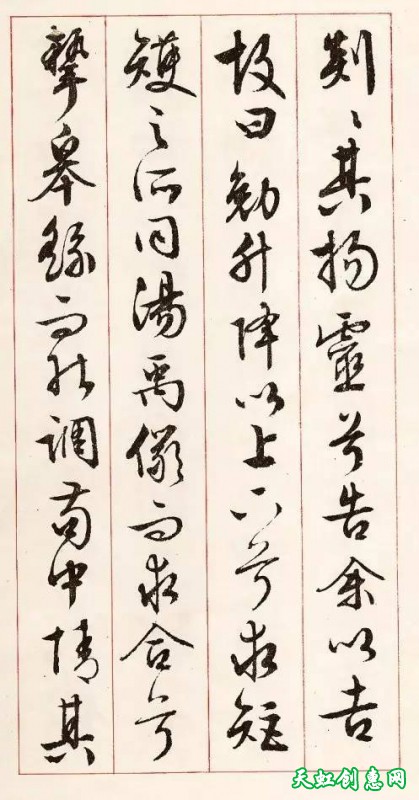 剡〻其揚靈兮告余以吉
故曰勉升降以上下兮求矩
矱之所同湯禹儼而求合兮
摯皋繇而能調苟中情其
天虹创惠网